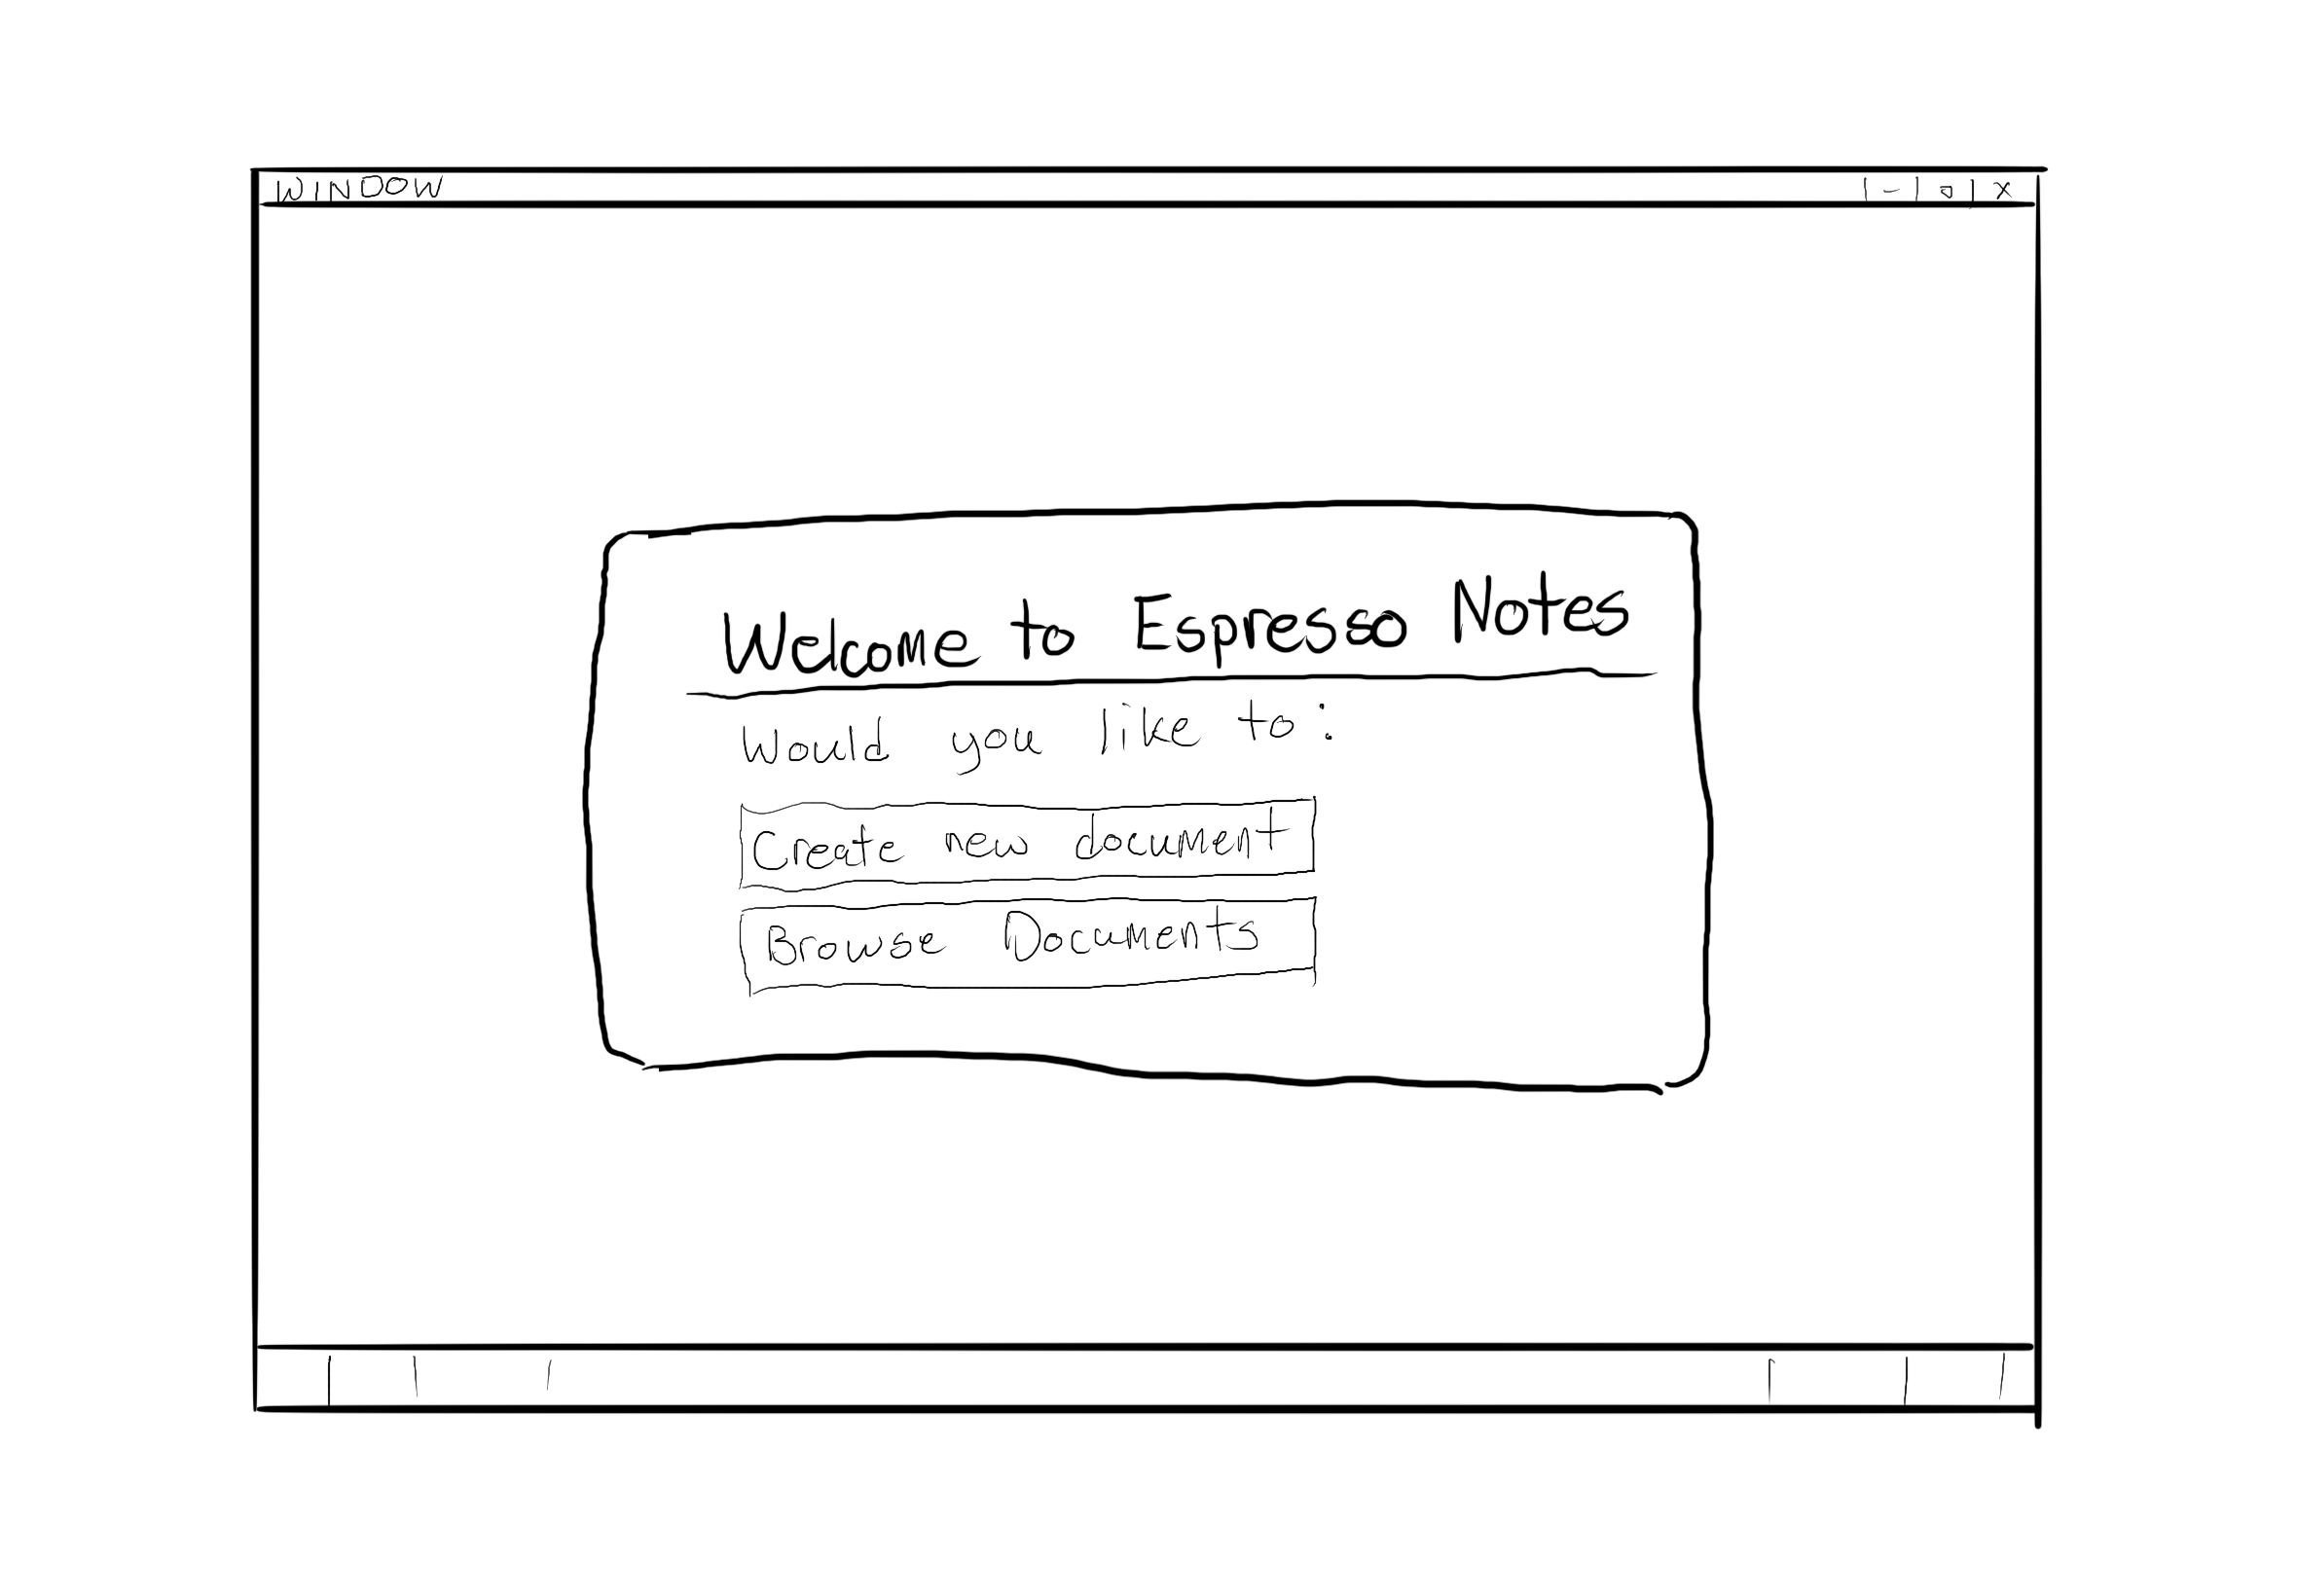 WINDOW
Welcome to Espresso Notes
Would you like to:
Create new document
Browse Documents